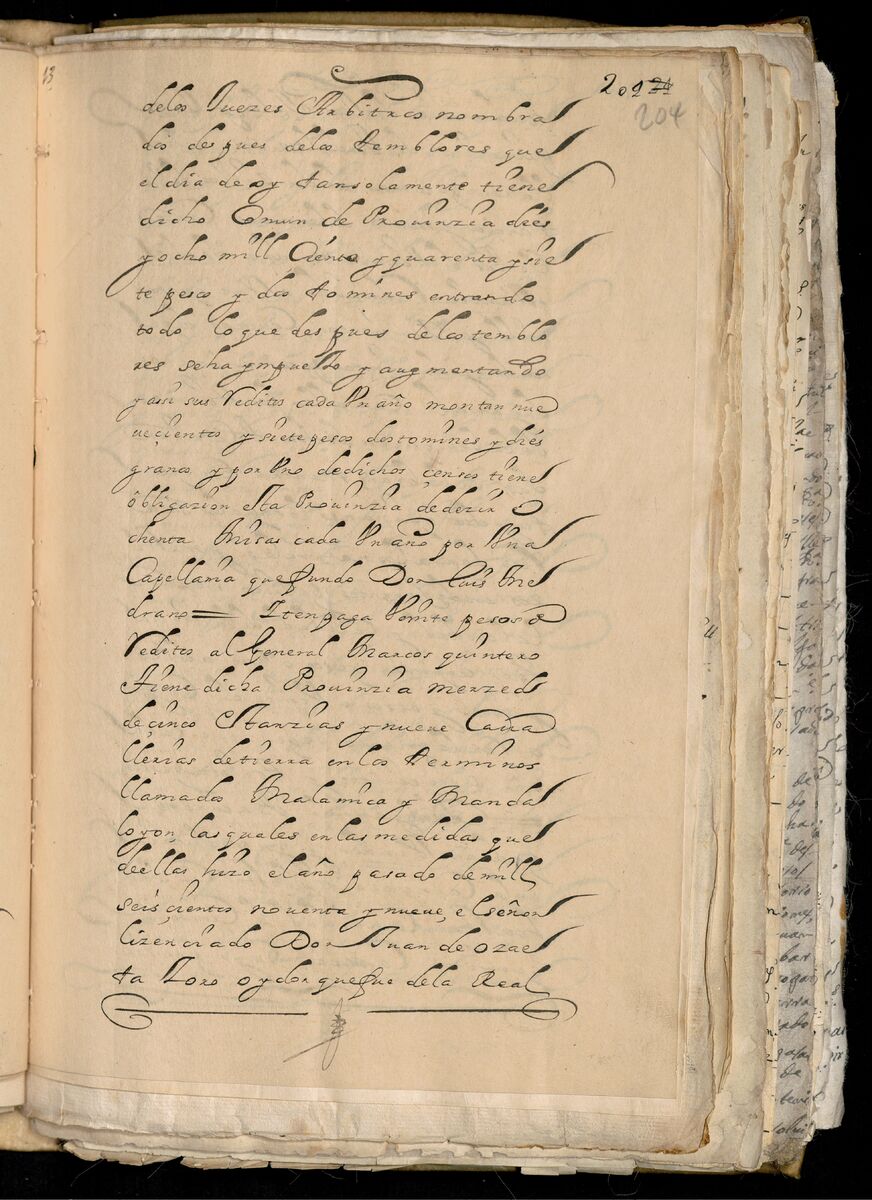 202
204
13
delos Juezes Arbitros nombra
dos despues delos temblores que
el dia de oy tansolamente tiene
dicho Comun de Prouinzia dies
y ocho mill Ciento y quarenta y sie
te pesos y dos tomines entrando
todo loque despues delos temblo
res seha ynpuesto y augmentando
y assi sus Reditos cada Vn año montan nue
ueçientos y siete pesos dos tomines y dies
granos y por Vno dedichos çensos tiene
obligazion esta Prouinzia dedezir o
chenta Misas cada Vn año por Vna
Capellania quefundo Don Luis Me
drano = Iten paga Veinte pesos de
Reditos al General Marcos quintero
Tiene dicha Prouinzia merzed
deçinco estanzias y nueve Caua
llerias detierra en los terminos
llamados Malamico y Manda
loyon, las quales en las medidas que
deellas hizo el año pasado de mill
seisçientos noventa y nueve, el señor
lizenciado Don Juan de ozae
ta Toro oydor quefue dela Real